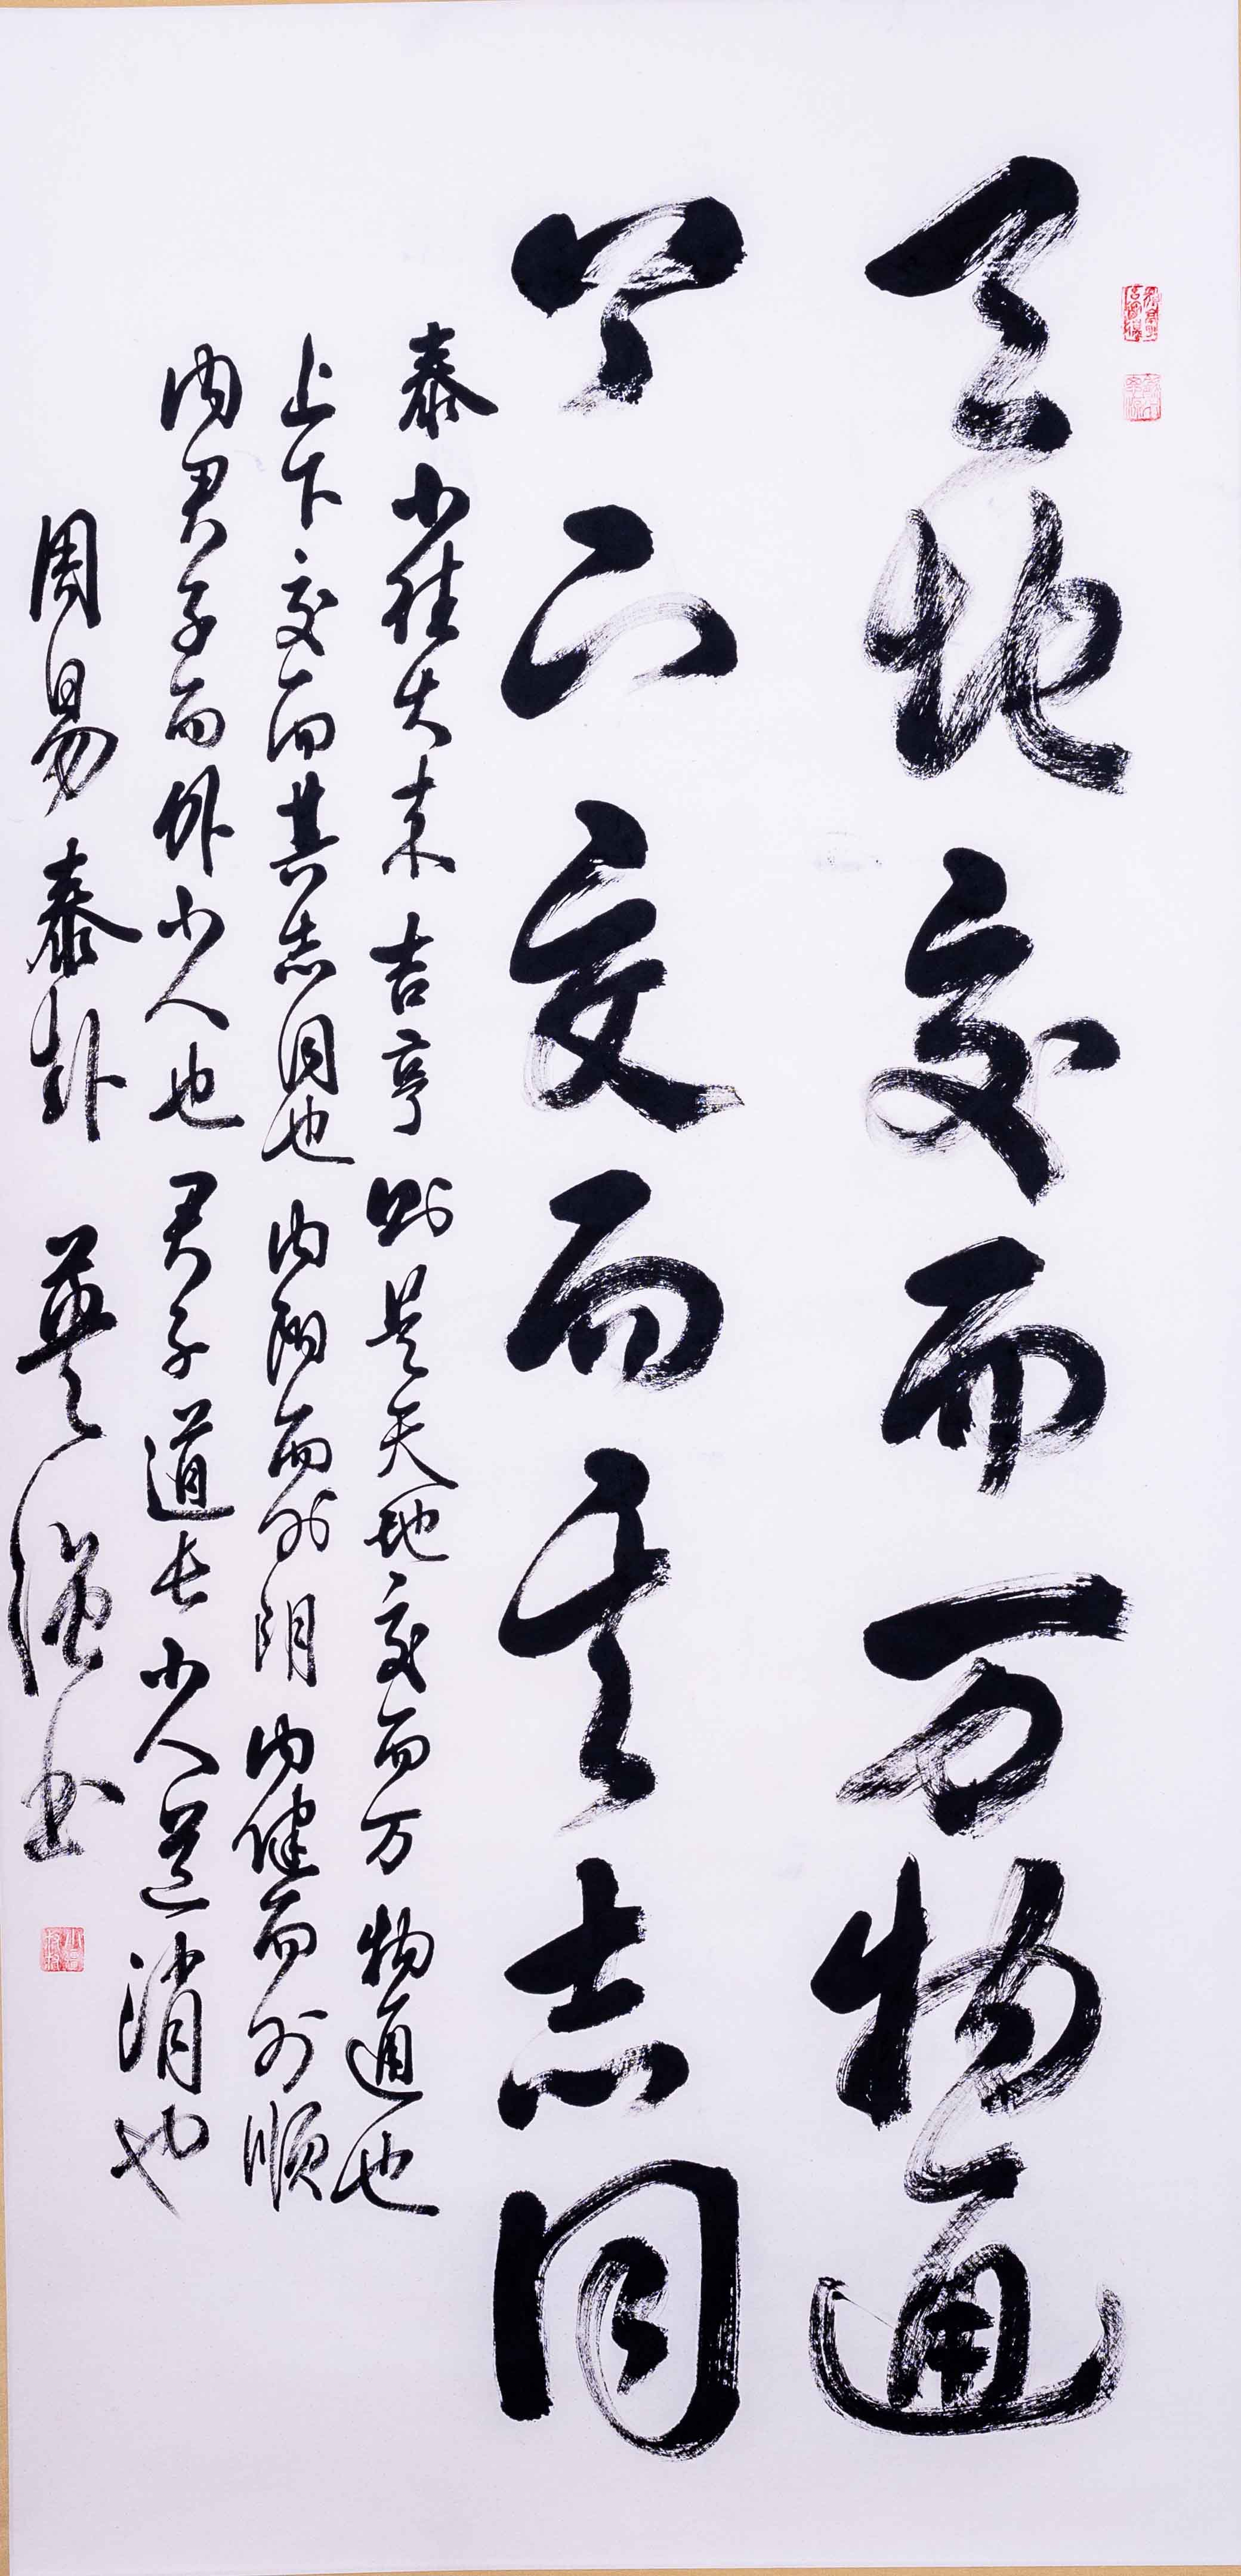 天地交而万物通
上下交而其志同
泰小往大来吉亨则是天地交而万物通也
上下交而其志同也内阳而外阴内健而外顺
内君子而外小人也君子道长小人道消也
周易泰卦 英强书